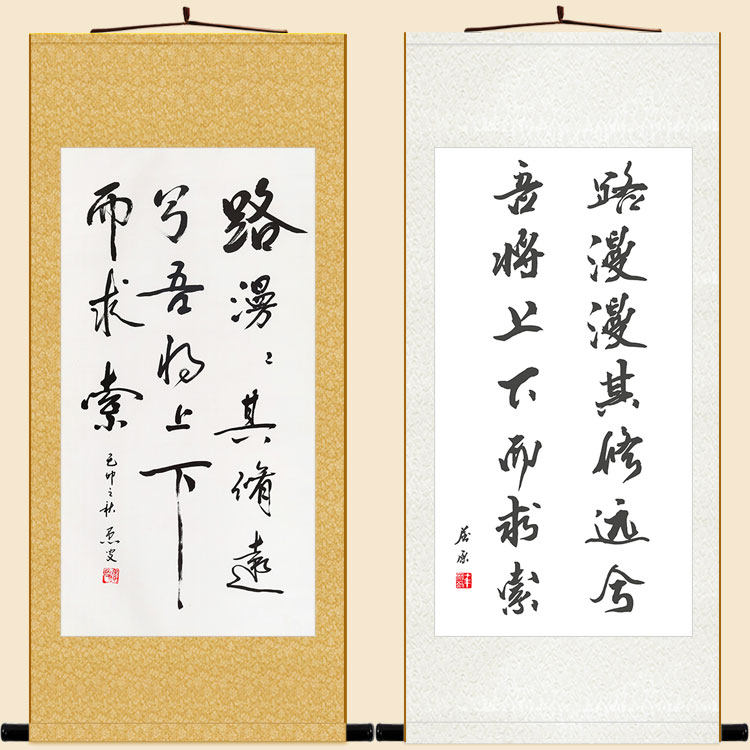 路漫〻其脩遠
兮吾将上下
而求索
己卯之秋
路漫漫其修远兮
吾将上下而求索
屈原